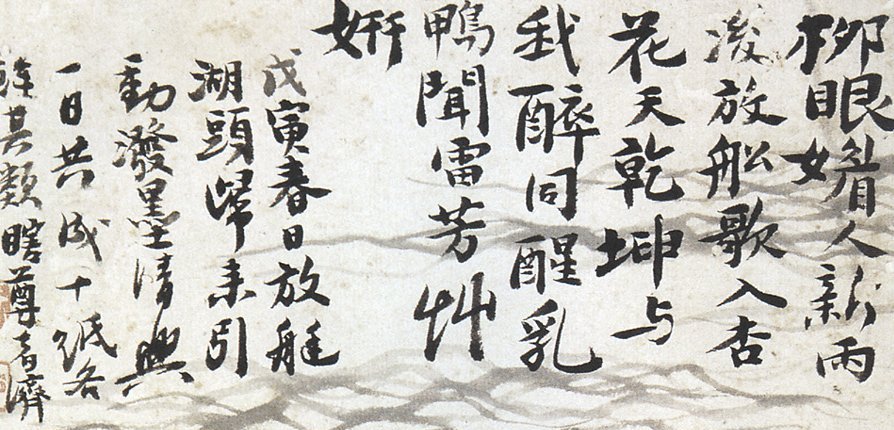 柳眼媚人新雨
後放船歌入杏
花天乾坤与
我醉同醒乳
鴨聞雷芳艸
妍
戊寅春日放艇
湖頭歸来引
動潑墨清興
一日共成十紙各
其類瞎尊者濟